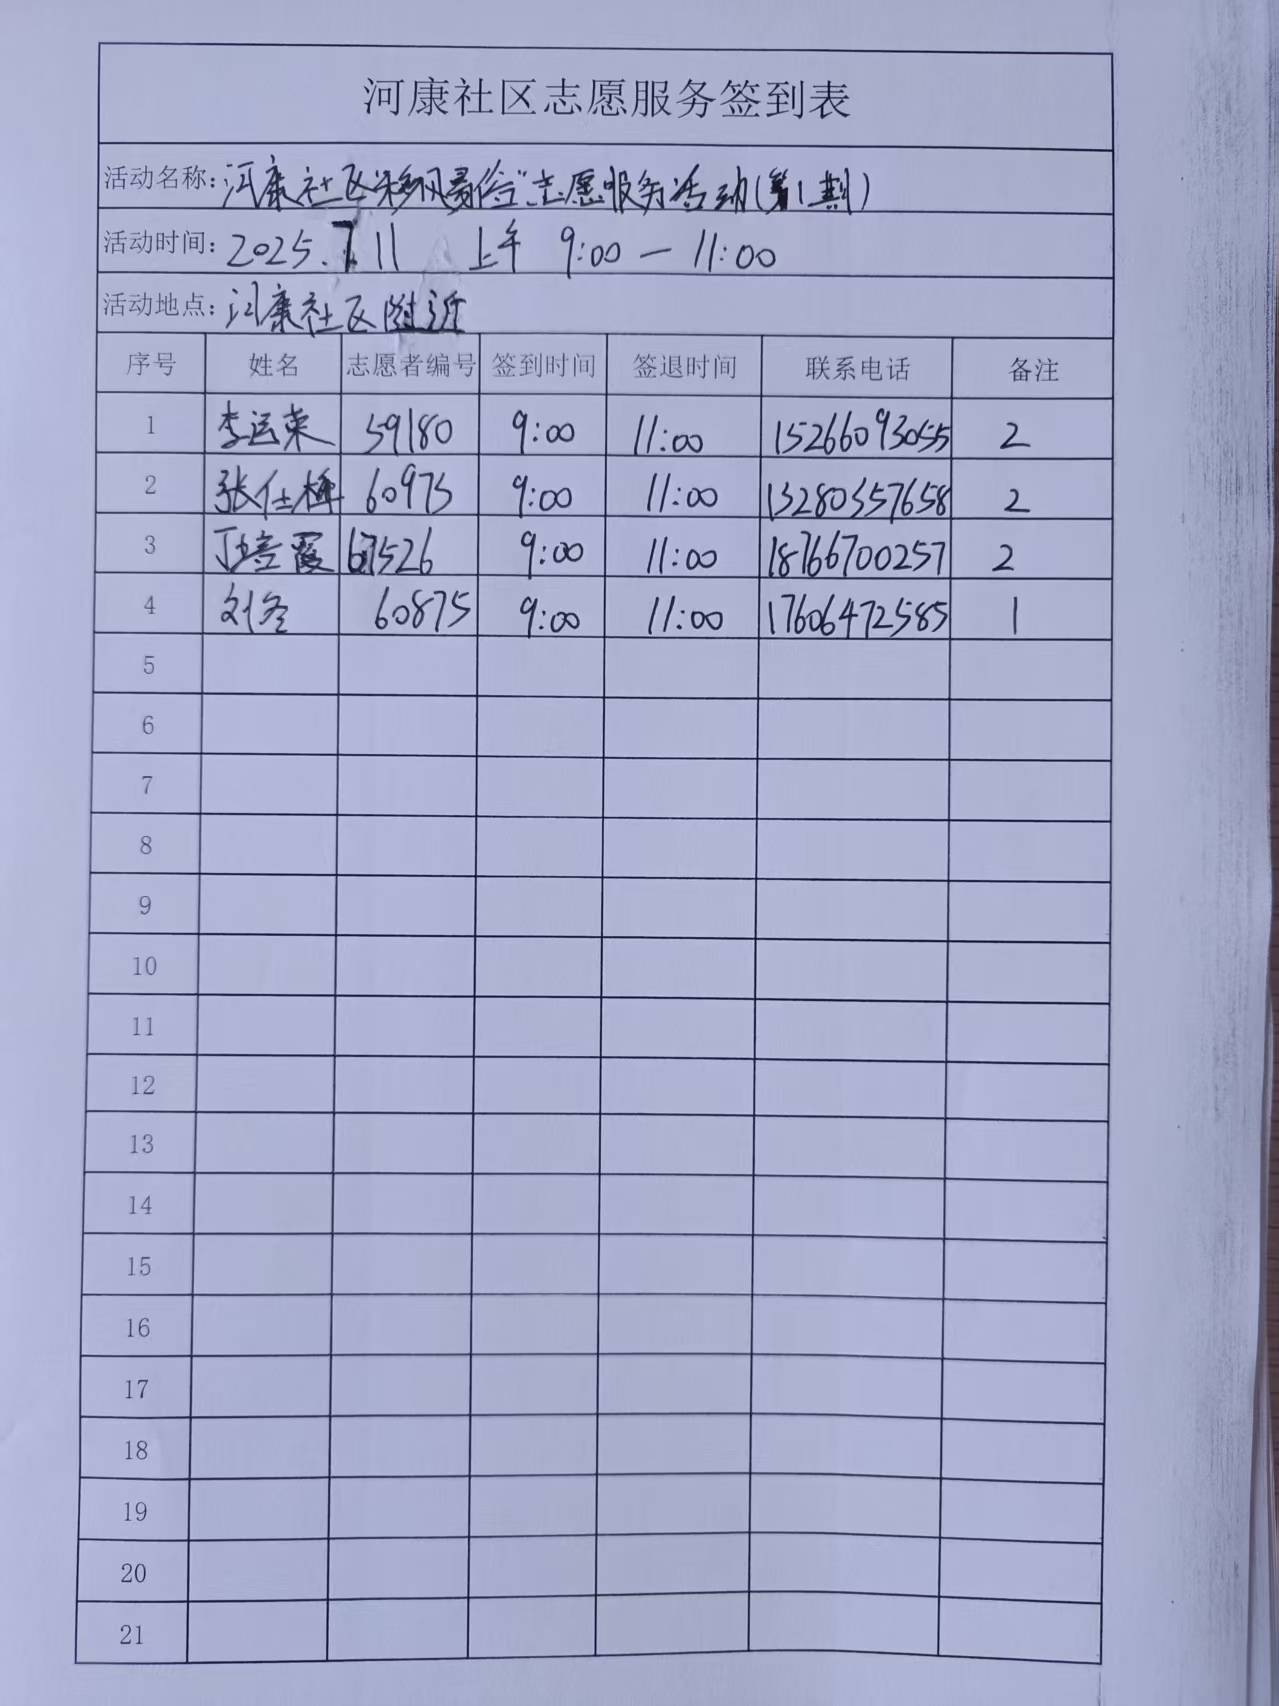 河康社区志愿服务签到表
活动名称: 河康社区"移风易俗"志愿服务活动(第1期)
活动时间: 2025.7.11 上午 9:00 — 11:00
活动地点: 河康社区附近
序号 姓名 志愿者编号 签到时间 签退时间 联系电话 备注
1 李运荣 59180 9:00 11:00 15266093055 2
2 张仕 60975 9:00 11:00 13280357658 2
3 丁培霞 67526 9:00 11:00 18766700257 2
4 刘冬 60875 9:00 11:00 17606472585 1
5
6
7
8
9
10
11
12
13
14
15
16
17
18
19
20
21